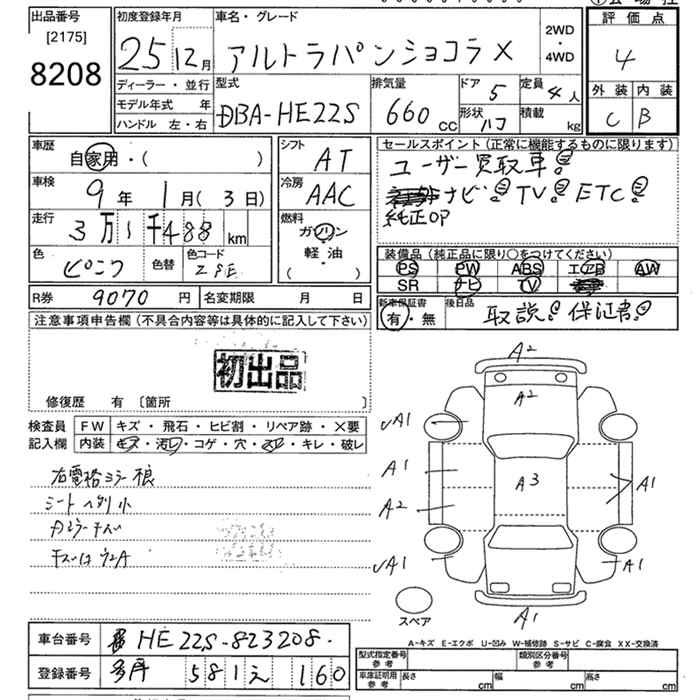 出品番号 [2175] 8208
初度登録年月 25 12月
車名・グレード アルトラパンショコラ X
2WD・4WD
評価点 4
外装 C 内装 B
ディーラー・並行
モデル年式 年
ハンドル 左・右
型式 DBA-HE22S
排気量 660 cc
ドア 5 形状 ハコ
定員 4人 積載 kg
車歴 自家用・( )
車検 9年 1月(3日)
走行 3万1千488 km
色 ピンク 色替 色コード
シフト AT
冷房 AAC
燃料 ガソリン 軽・油 ( )
R券 9070円 名変期限 月 日
セールスポイント(正常に機能するものに限ります)
ユーザー買取車!
ナビ! TV! ETC!
純正OP
装備品(純正品に限り○をつけてください)
PS PW ABS エアB AW
SR ナビ TV
新車保証書 有・無
後日品 取説! 保証書!
注意事項申告欄(不具合内容等は具体的に記入して下さい)
初出品
修復歴 有 〔箇所 〕
検査員記入欄
FW キズ・飛石・ヒビ割・リペア跡・X要
内装 キズ・汚れ・コゲ・穴・スレ・キレ・破レ
右電格ミラー
シート
A2
A2
A1
A1
A2
A3
A1
A1
A1
A1
スペア
A-キズ E-エクボ U-凹み W-補修跡 S-サビ C-腐食 XX-交換済
車台番号 HE22S-823208
登録番号 581 え 160
型式指定番号 参考
類別区分番号 参考
車庫証明用 参考 長さ cm 幅 cm 高さ cm